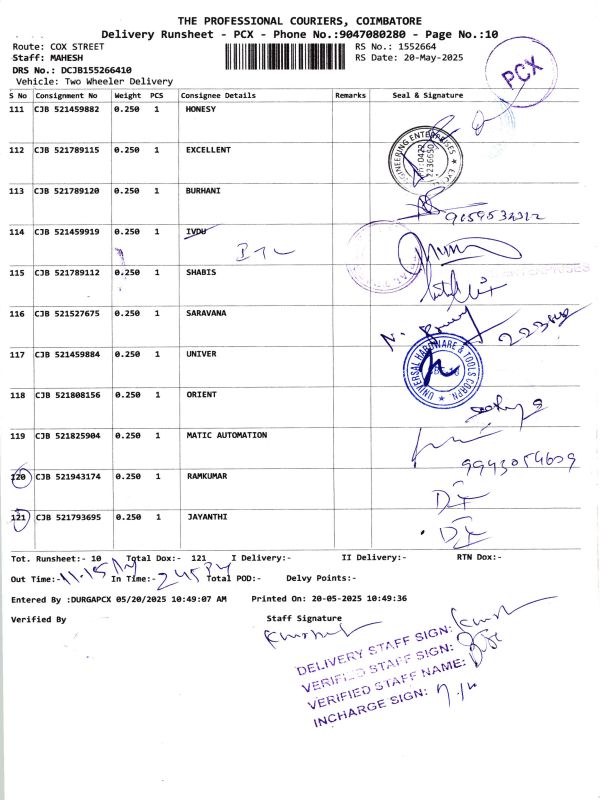 THE PROFESSIONAL COURIERS, COIMBATORE
Delivery Runsheet - PCX - Phone No.:9047080280 - Page No.:10
Route: COX STREET RS No.: 1552664
Staff: MAHESH RS Date: 20-May-2025
DRS No.: DCJB155266410
Vehicle: Two Wheeler Delivery
PCX
S No Consignment No Weight PCS Consignee Details Remarks Seal & Signature
111 CJB 521459882 0.250 1 HONESY
112 CJB 521789115 0.250 1 EXCELLENT
113 CJB 521789120 0.250 1 BURHANI
114 CJB 521459919 0.250 1 IVDU
115 CJB 521789112 0.250 1 SHABIS
116 CJB 521527675 0.250 1 SARAVANA
117 CJB 521459884 0.250 1 UNIVER
UNIVERSAL HARDWARE & TOOLS CORPN.
118 CJB 521808156 0.250 1 ORIENT
119 CJB 521825904 0.250 1 MATIC AUTOMATION
9943054609
120 CJB 521943174 0.250 1 RAMKUMAR
121 CJB 521793695 0.250 1 JAYANTHI
Tot. Runsheet:- 10 Total Dox:- 121 I Delivery:- II Delivery:- RTN Dox:-
Out Time:- 11.15 In Time:- 2.45 Total POD:- Delvy Points:-
Entered By :DURGAPCX 05/20/2025 10:49:07 AM Printed On: 20-05-2025 10:49:36
Verified By Staff Signature
DELIVERY STAFF SIGN:
VERIFIED STAFF SIGN:
VERIFIED STAFF NAME:
INCHARGE SIGN: